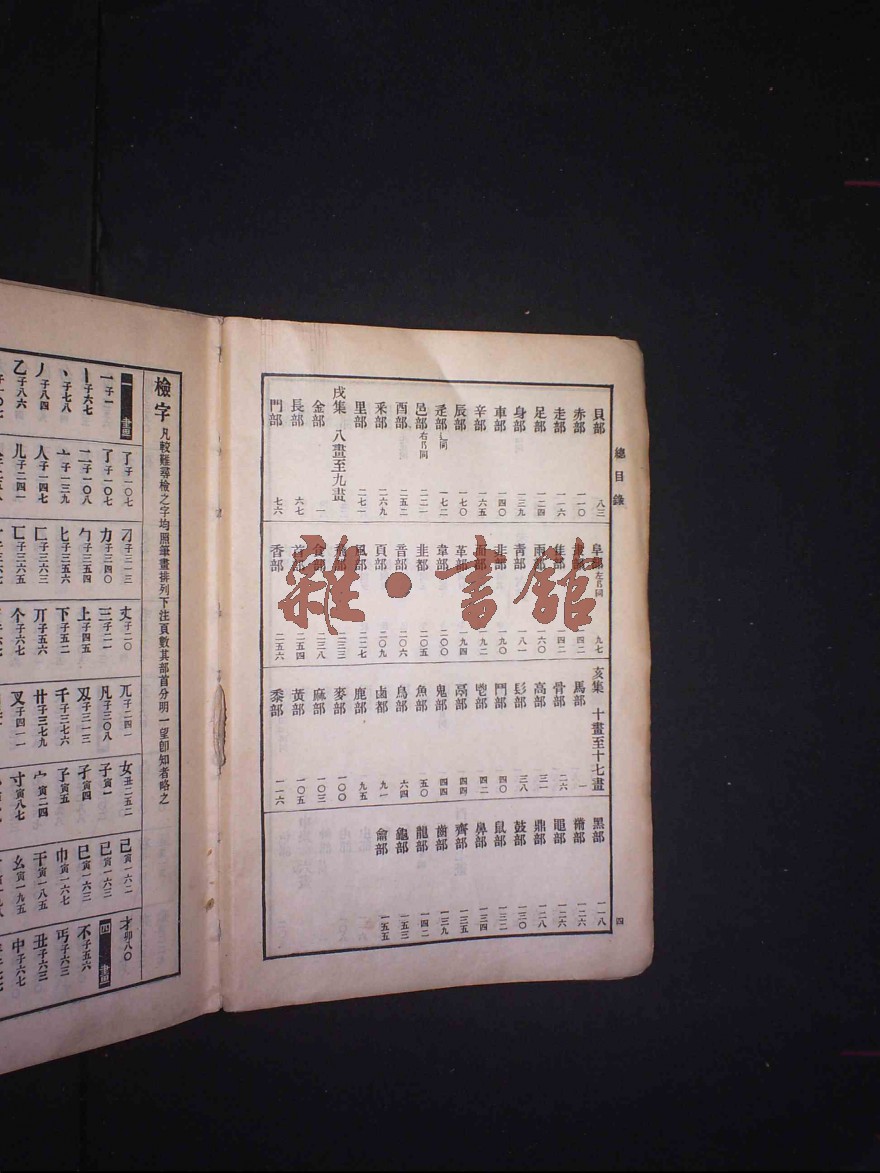 總目錄
貝部 八三
赤部 一一〇
走部 一一六
足部 一二四
身部 一三九
車部 一四〇
辛部 一六五
辰部 一七〇
辵部 辶同 一七二
邑部 右阝同 二二一
酉部 二五二
釆部 二六九
里部 二七一
戌集 八畫至九畫
金部 一
長部 六七
門部 七六
阜部 左阝同 九七
隹部
雨部 一六〇
靑部 一八一
非部 一九〇
面部 一九二
革部 一九四
韋部 二〇〇
韭部 二〇五
音部 二〇六
頁部 二〇九
風部 二二七
飛部 二三三
食部 二三八
首部 二五四
香部 二五六
亥集 十畫至十七畫
馬部 一
骨部 二六
高部 三一
髟部 三八
鬥部 四〇
鬯部 四二
鬲部 四四
鬼部 四四
魚部 五〇
鳥部 六四
鹵部 九一
鹿部 九五
麥部 一〇〇
麻部 一〇三
黃部 一〇五
黍部 一一六
黑部 一一八
黹部 一二六
黽部 一二六
鼎部 一二八
鼓部 一三〇
鼠部 一三二
鼻部 一三四
齊部 一三五
齒部 一三九
龍部 一四二
龜部 一五三
龠部 一五五
四
雜·書館
檢字 凡較難尋檢之字均照筆畫排列下注頁數其部首分明一望卽知者略之
一畫
一 子一
丨 子六七
丶 子七八
丿 子八四
乙 子八六
了 子一〇七
二 子一〇八
亠 子一三九
人 子一四七
儿 子二四一
刀 子三一三
力 子三四〇
勹 子三五四
匕 子三五六
匚 子三六三
匸 子三六五
丈 子二〇
三 子二一
上 子四五
下 子五二
丌 子五六
个 子六七
兀 子二四一
凡 子三〇八
叉 子四一一
千 子三七六
廾 子三七九
女 丑二五二
子 寅一
孑 寅四
孒 寅五
宀 寅二四
寸 寅八七
己 寅一六二
已 寅一六三
巳 寅一六三
巾 寅一六七
干 寅一八五
幺 寅一九五
才 卯八〇
四畫
不 子五六
丐 子六三
丑 子六三
中 子六七